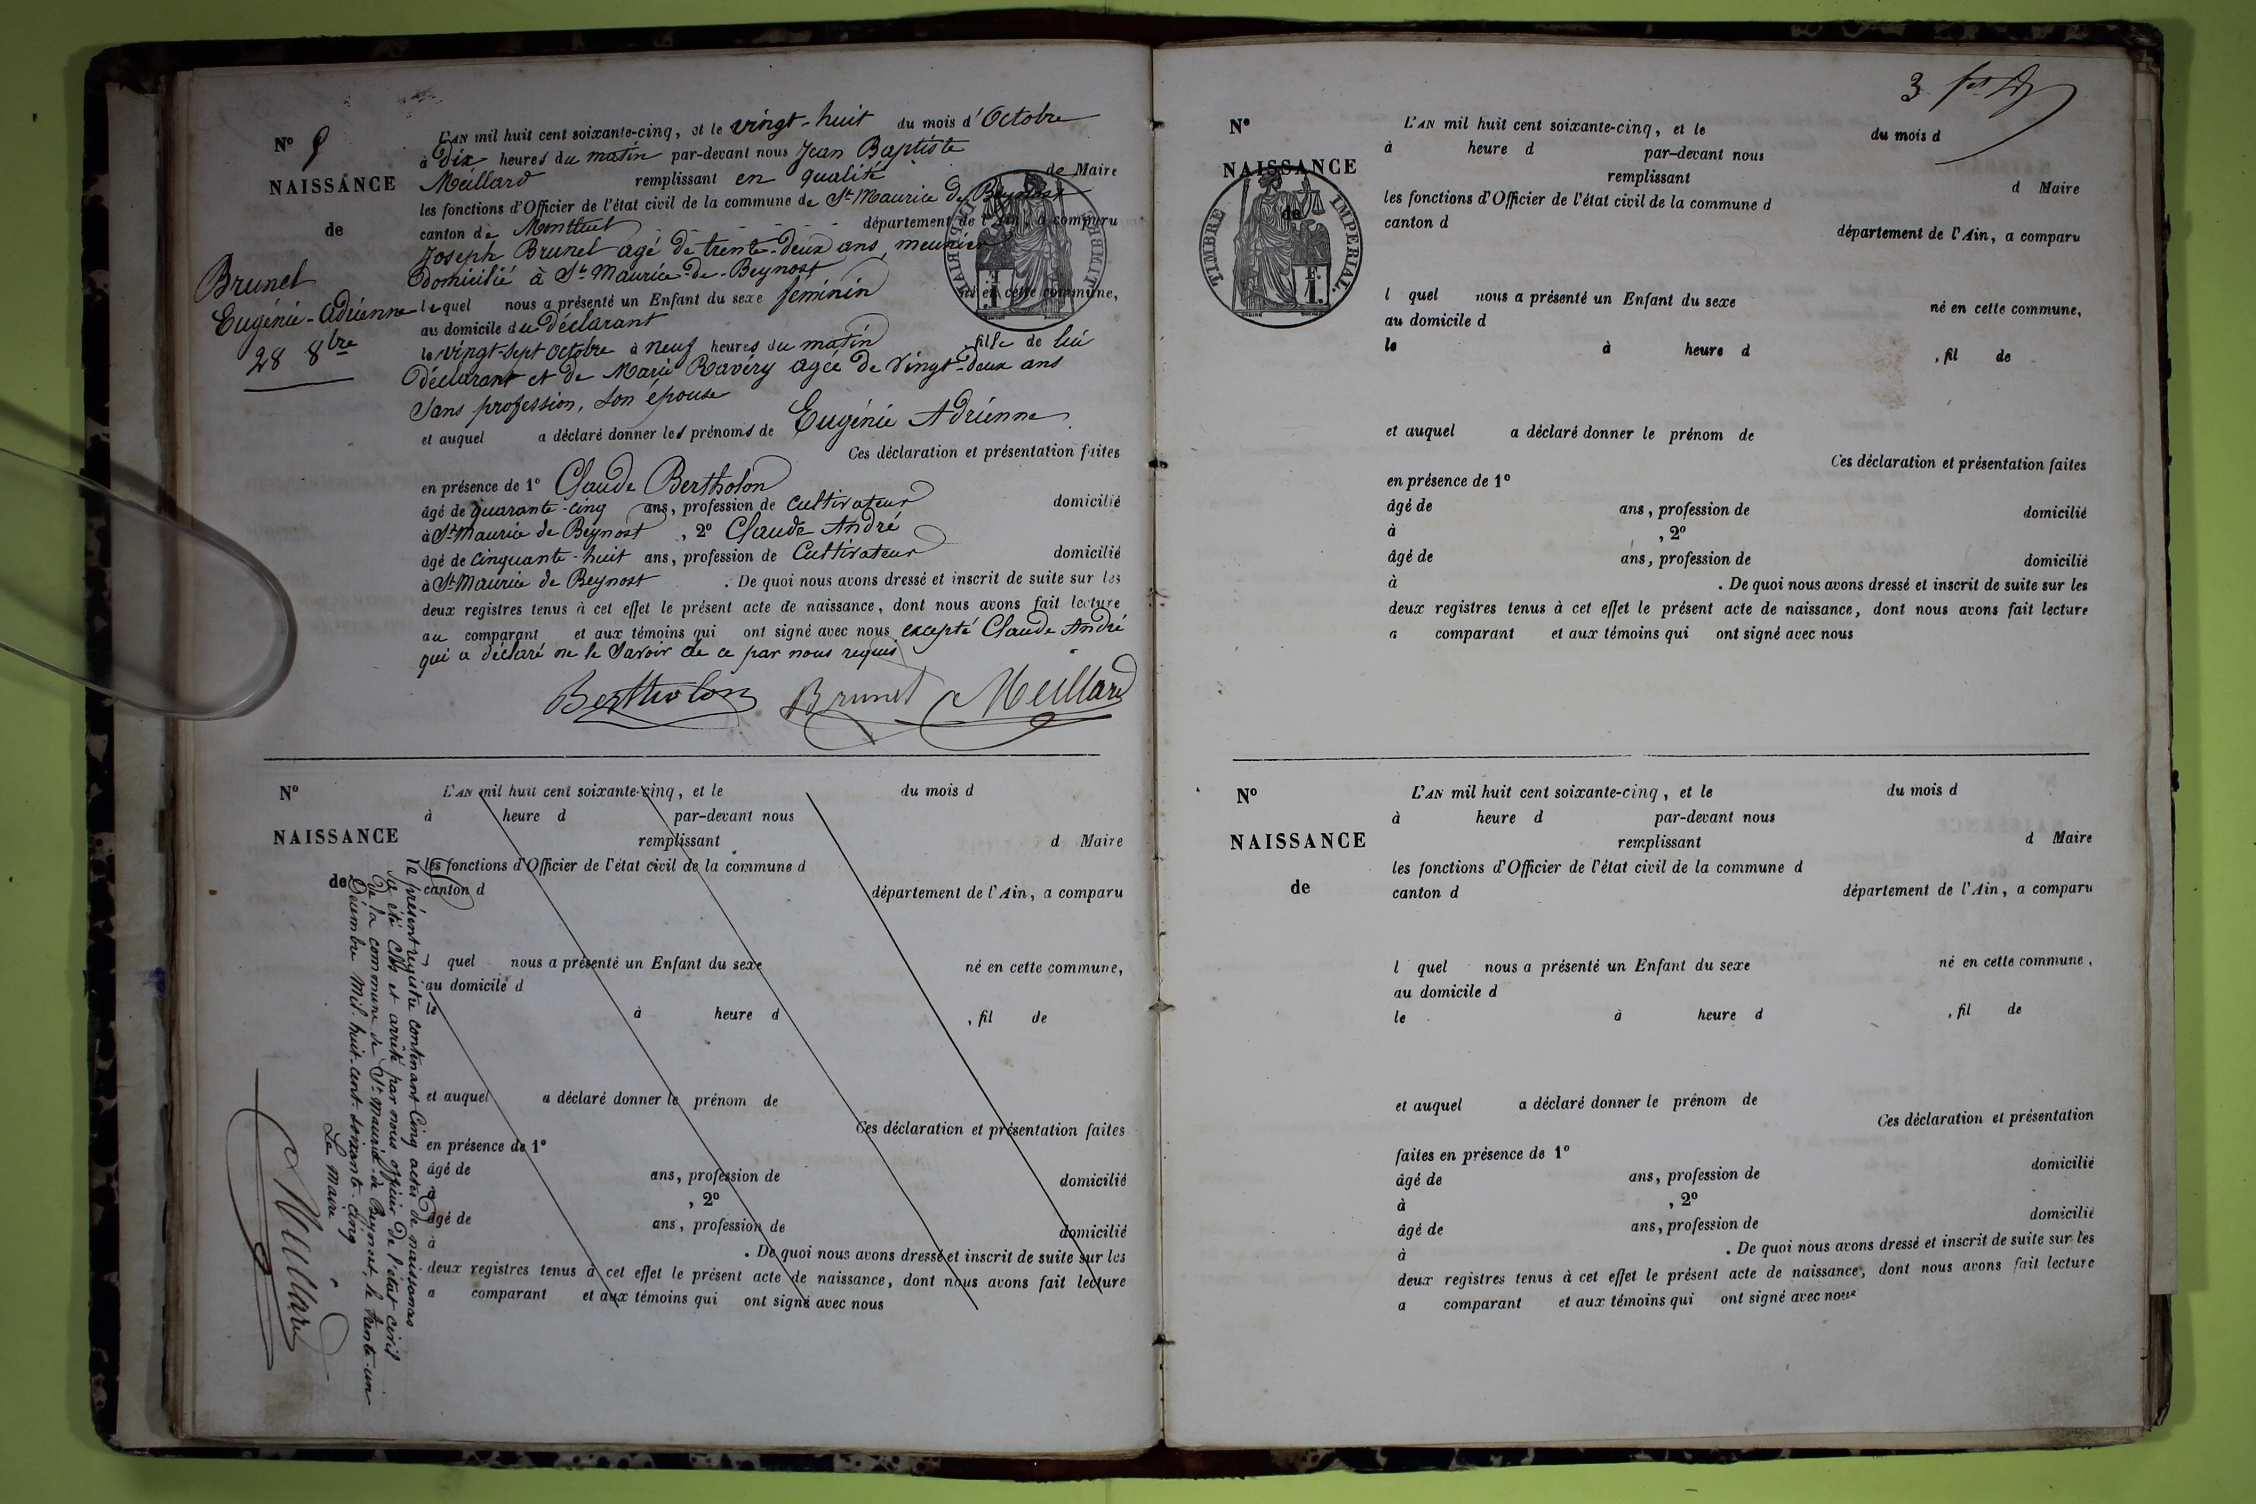 N° 5
NAISSANCE
de
Brunet
Eugénie-Adrienne
28 8bre
L'AN mil huit cent soixante-cinq, et le vingt-huit du mois d'Octobre
à dix heures du matin par-devant nous Jean Baptiste
Meillard remplissant en qualité de Maire
les fonctions d'Officier de l'état civil de la commune de St Maurice de Beynost
canton de Montluel département de l'Ain, a comparu
Joseph Brunet agé de trente-deux ans, meunier
domicilié à St Maurice-de-Beynost
lequel nous a présenté un Enfant du sexe feminin né en cette commune,
au domicile du Déclarant
le vingt-sept octobre à neuf heures du matin, fille de lui
déclarant et de Marie Ravéry agée de vingt-deux ans
sans profession, son épouse
et auquel a déclaré donner les prénoms de Eugénie Adrienne
Ces déclaration et présentation faites
en présence de 1° Claude Bertholon
âgé de quarante-cinq ans, profession de cultivateur domicilié
à St Maurice de Beynost, 2° Claude André
âgé de cinquante-huit ans, profession de Cultivateur domicilié
à St Maurice de Beynost. De quoi nous avons dressé et inscrit de suite sur les
deux registres tenus à cet effet le présent acte de naissance, dont nous avons fait lecture
au comparant et aux témoins qui ont signé avec nous excepté Claude André
qui a déclaré ne le savoir de ce par nous requis
Bertholon Brunet Meillard
N°
NAISSANCE
de
L'AN mil huit cent soixante-cinq, et le du mois d
à heure d par-devant nous
remplissant d Maire
les fonctions d'Officier de l'état civil de la commune d
canton d département de l'Ain, a comparu
l quel nous a présenté un Enfant du sexe né en cette commune,
au domicile d
à heure d, fil de
et auquel a déclaré donner le prénom de
Ces déclaration et présentation faites
en présence de 1°
âgé de ans, profession de domicilié
à, 2°
âgé de ans, profession de domicilié
à. De quoi nous avons dressé et inscrit de suite sur les
deux registres tenus à cet effet le présent acte de naissance, dont nous avons fait lecture
a comparant et aux témoins qui ont signé avec nous
Le présent registre contenant Cinq actes de naissances
a été clos et arrêté par nous officier de l'état civil
de la commune de St Maurice-de-Beynost, le trente-un
Décembre Mil-huit-cent-soixante-cinq
Le Maire
Meillard
3
N°
NAISSANCE
de
TIMBRE IMPERIAL.
L'AN mil huit cent soixante-cinq, et le du mois d
à heure d par-devant nous
remplissant d Maire
les fonctions d'Officier de l'état civil de la commune d
canton d département de l'Ain, a comparu
l quel nous a présenté un Enfant du sexe né en cette commune,
au domicile d
le à heure d, fil de
et auquel a déclaré donner le prénom de
Ces déclaration et présentation faites
en présence de 1°
âgé de ans, profession de domicilié
à, 2°
âgé de ans, profession de domicilié
à. De quoi nous avons dressé et inscrit de suite sur les
deux registres tenus à cet effet le présent acte de naissance, dont nous avons fait lecture
a comparant et aux témoins qui ont signé avec nous
N°
NAISSANCE
de
L'AN mil huit cent soixante-cinq, et le du mois d
à heure d par-devant nous
remplissant d Maire
les fonctions d'Officier de l'état civil de la commune d
canton d département de l'Ain, a comparu
l quel nous a présenté un Enfant du sexe né en cette commune,
au domicile d
le à heure d, fil de
et auquel a déclaré donner le prénom de
Ces déclaration et présentation
faites en présence de 1°
âgé de ans, profession de domicilié
à, 2°
âgé de ans, profession de domicilié
à. De quoi nous avons dressé et inscrit de suite sur les
deux registres tenus à cet effet le présent acte de naissance, dont nous avons fait lecture
a comparant et aux témoins qui ont signé avec nous